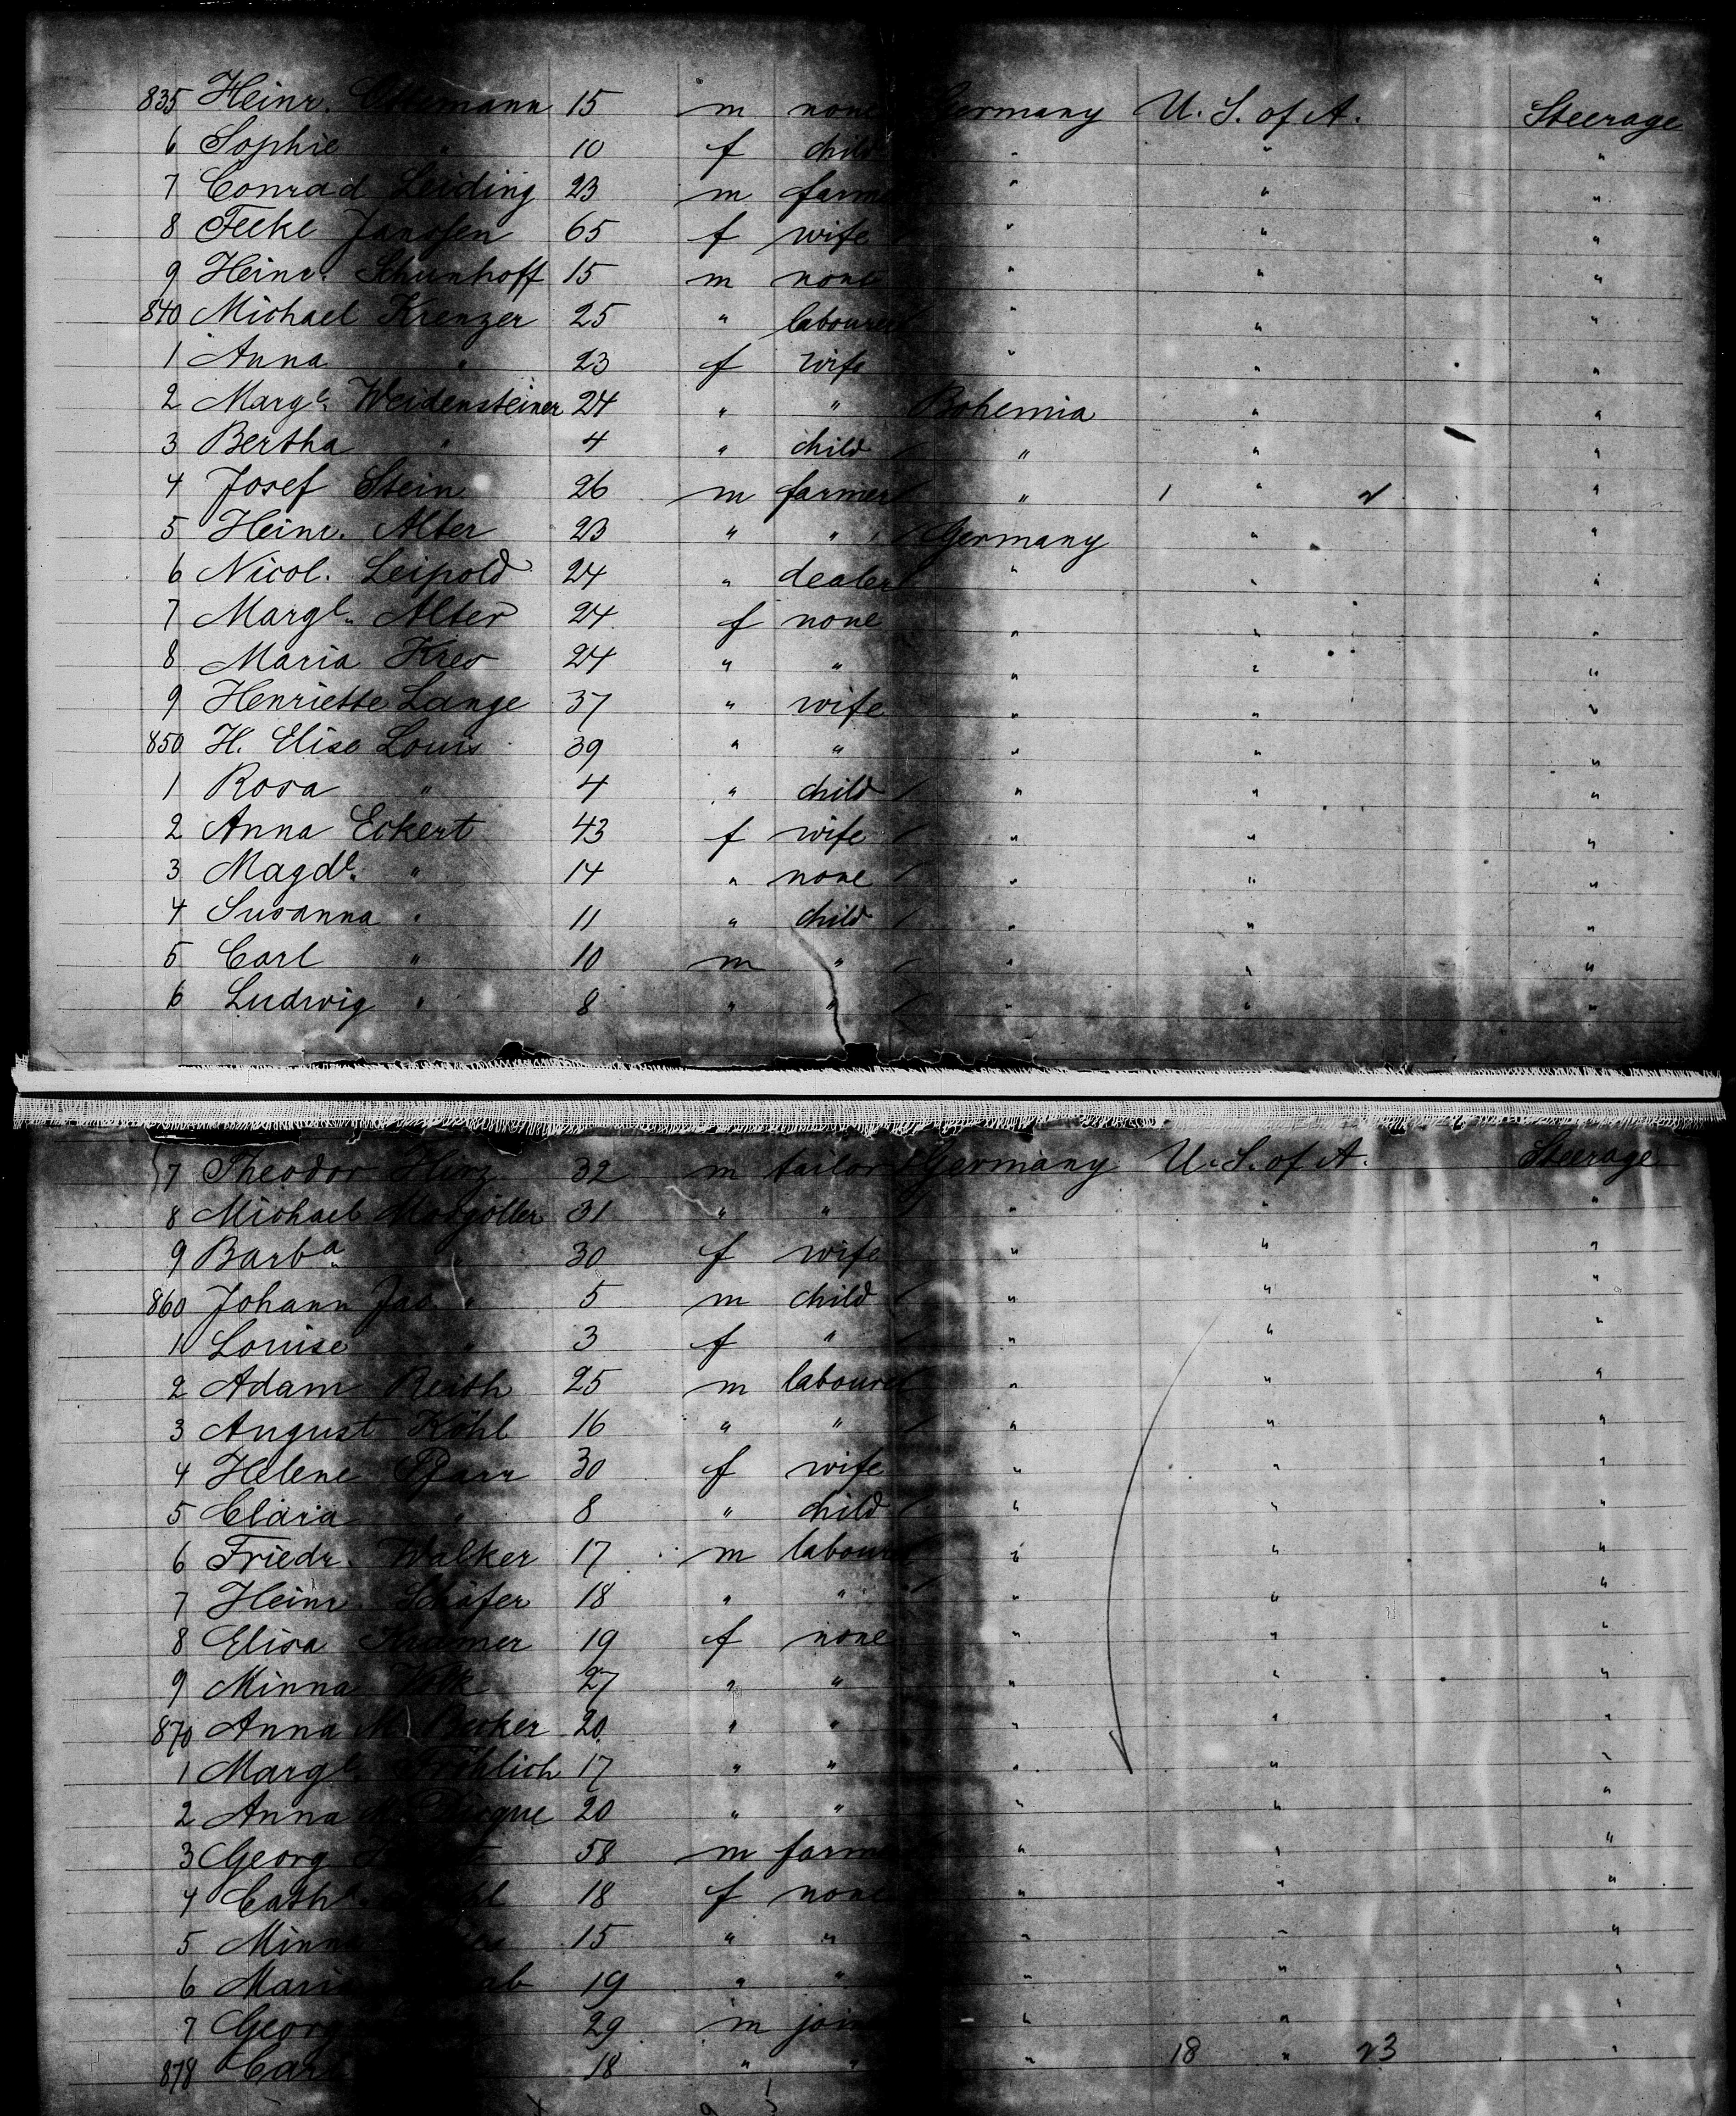 835 Heinr. 15 m none Germany U. S. of A. Steerage
6 Sophie " 10 f child " " "
7 Conrad Leiding 23 m farmer " " "
8 Feeke Janssen 65 f wife " " "
9 Heinr. Schunhoff 15 m none " " "
840 Michael Krenzer 25 " labourer " " "
1 Anna " 23 f wife " " "
2 Marge. Weidensteiner 24 " " Bohemia " "
3 Bertha " 4 " child " " "
4 Josef Stein 26 m farmer " 1 " "
5 Heinr. Alter 23 " " Germany " "
6 Nicol. Leipold 24 " dealer " " "
7 Marge. Alter 24 f none " " "
8 Maria Kres 24 " " " " "
9 Henriette Lange 37 " wife " " "
850 H. Elise Louis 39 " " " " "
1 Rosa " 4 " child " " "
2 Anna Eckert 43 f wife " " "
3 Magde. " 14 " none " " "
4 Susanna " 11 " child " " "
5 Carl " 10 m " " " "
6 Ludwig " 8 " " " " "
7 Theodor Hirz 32 m tailor Germany U. S. of A. Steerage
8 Michael Mosgöller 31 " " " " "
9 Barba. " 30 f wife " " "
860 Johann Jac. " 5 m child " " "
1 Louise " 3 f " " " "
2 Adam Reith 25 m labourer " " "
3 August Köhl 16 " " " " "
4 Helene 30 f wife " " "
5 Clara " 8 " child " " "
6 Friedr. Walker 17 m labourer " " "
7 Heinr. Schäfer 18 " " " " "
8 Elisa Kramer 19 f none " " "
9 Minna Volk 27 " " " " "
870 Anna M. Becker 20 " " " " "
1 Marge. Fröhlich 17 " " " " "
2 Anna M. 20 " " " " "
3 Georg 58 m farmer " " "
4 Cathe. 18 f none " " "
5 Minna 15 " " " " "
6 Maria 19 " " " " "
7 Georg 29 m joiner " " "
878 Carl 18 " " " 18 " 23 "